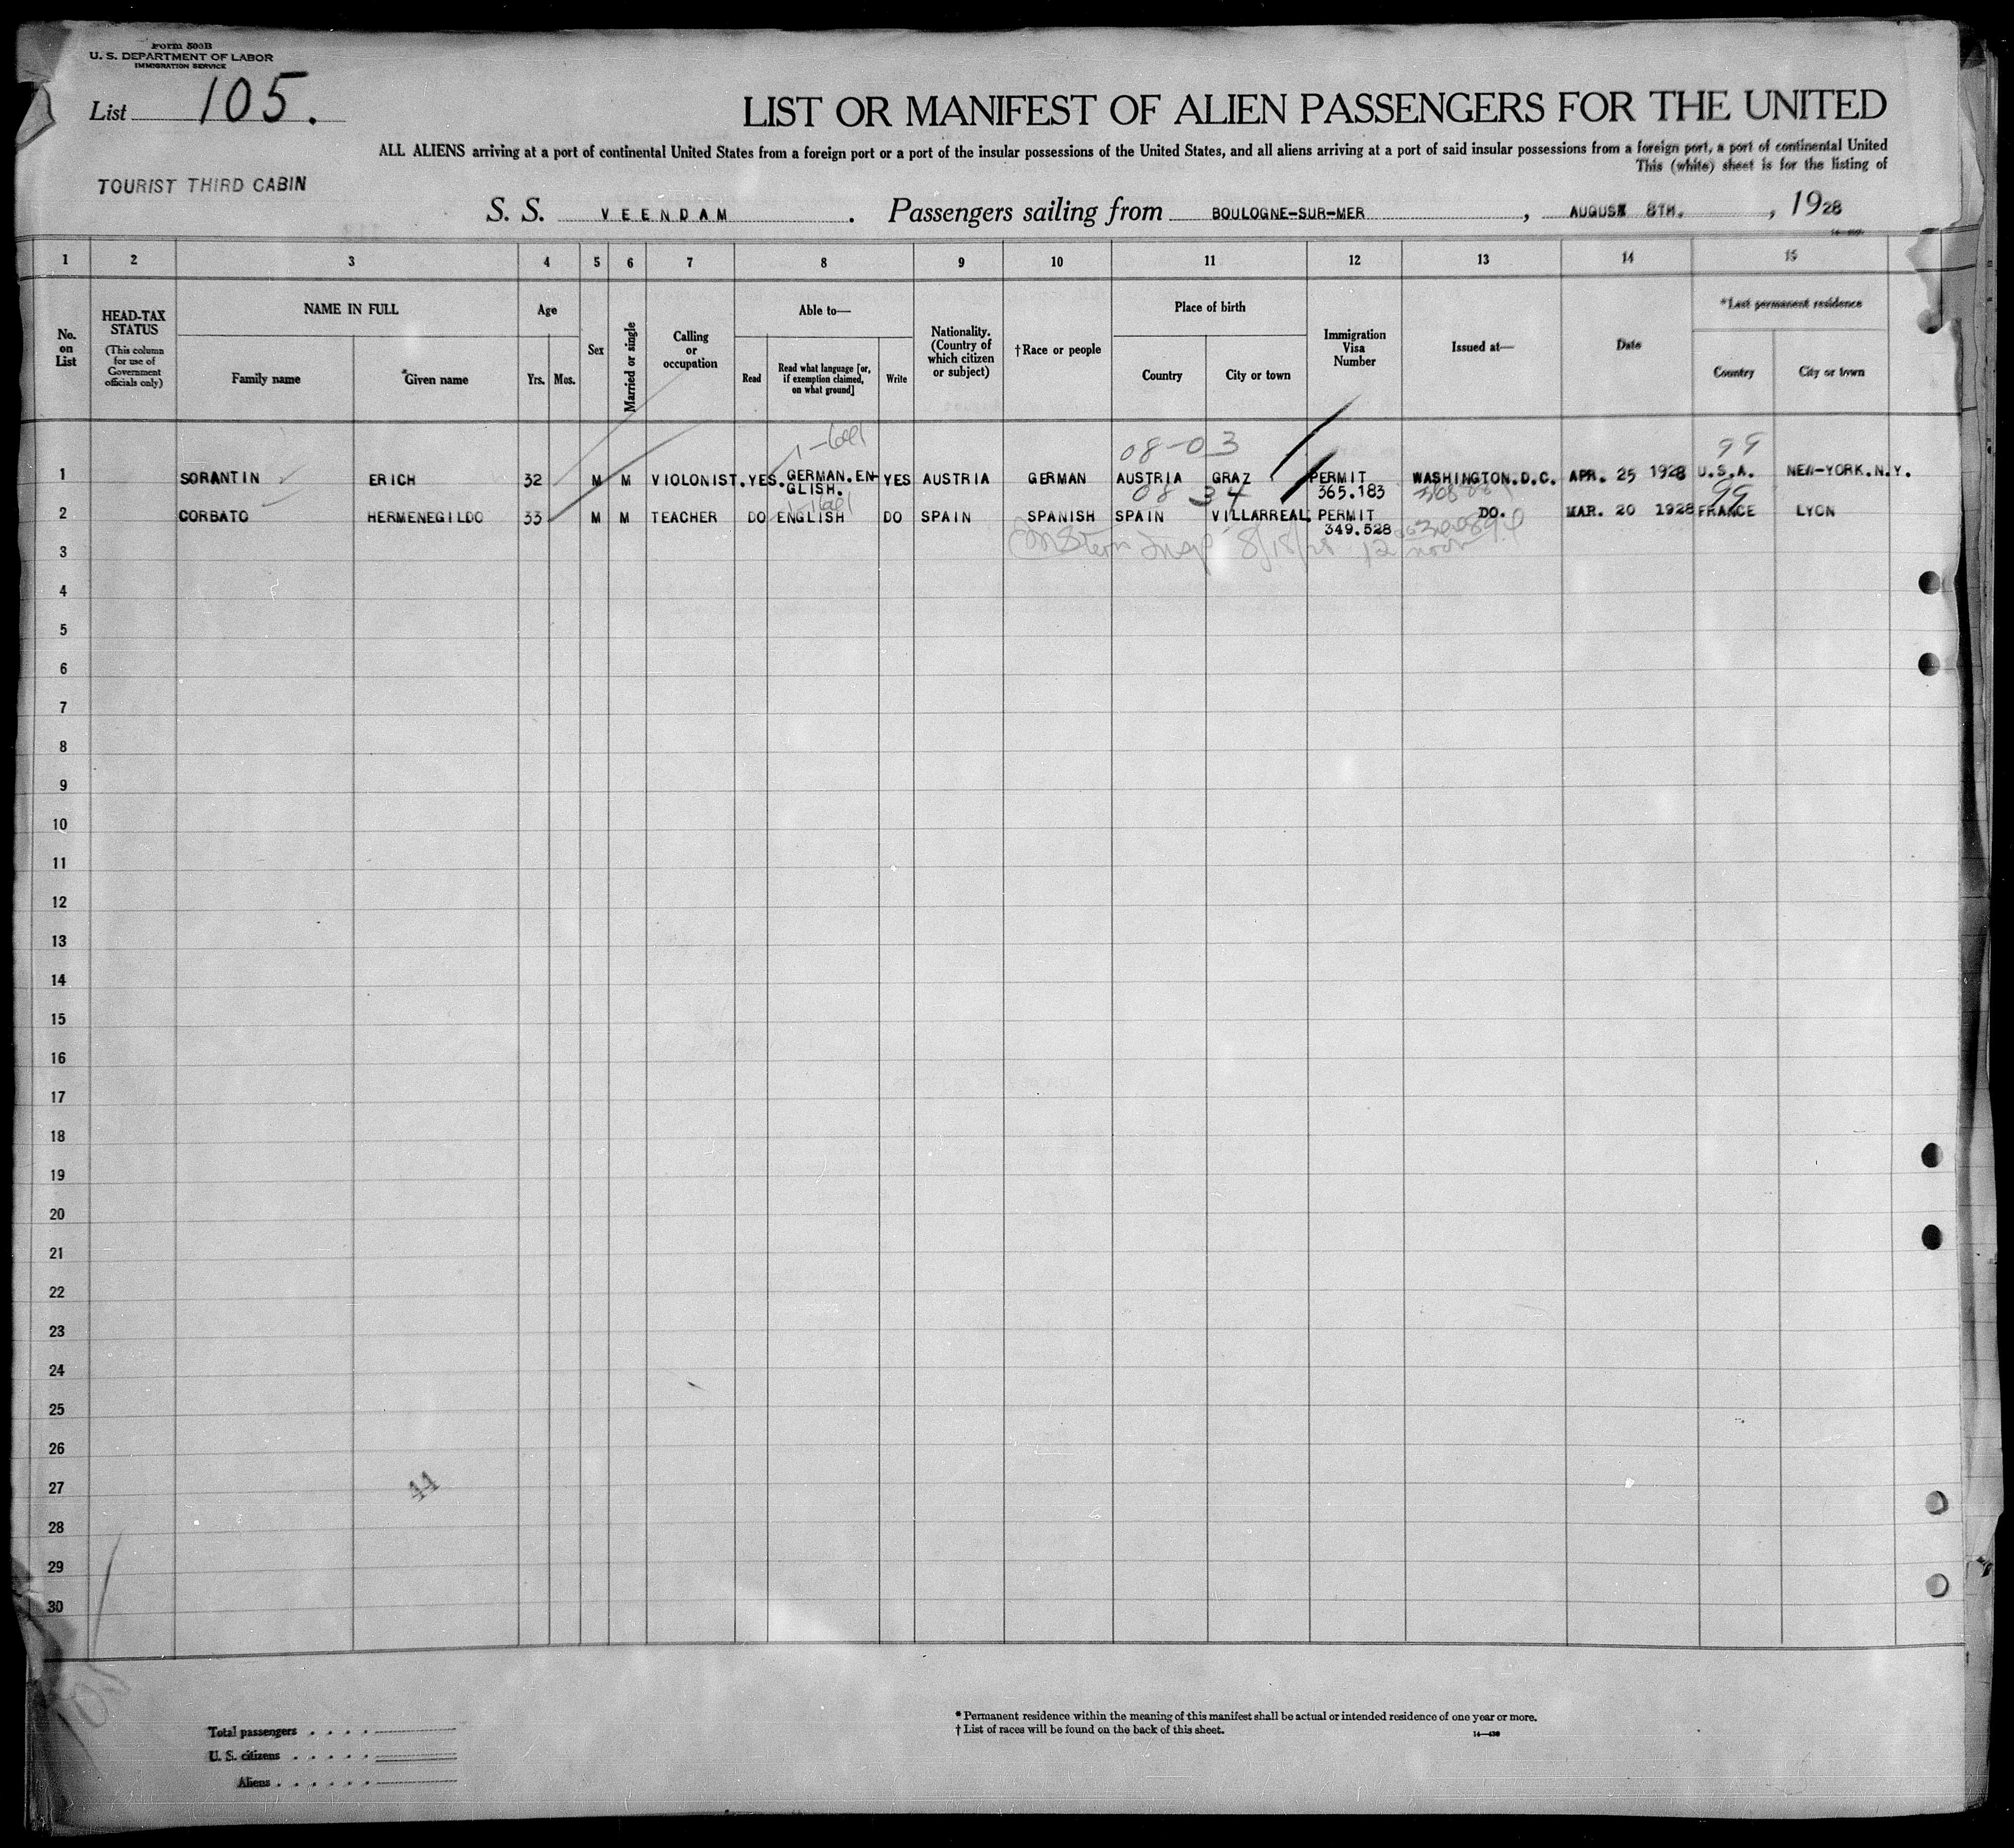 Form 500B
U. S. DEPARTMENT OF LABOR
IMMIGRATION SERVICE
List 105.
LIST OR MANIFEST OF ALIEN PASSENGERS FOR THE UNITED
ALL ALIENS arriving at a port of continental United States from a foreign port or a port of the insular possessions of the United States, and all aliens arriving at a port of said insular possessions from a foreign port, a port of continental United
This (white) sheet is for the listing of
TOURIST THIRD CABIN
S. S. VEENDAM. Passengers sailing from BOULOGNE-SUR-MER, AUGUST 8TH., 1928
1 2 3 4 5 6 7 8 9 10 11 12 13 14 15
No. on List
HEAD-TAX STATUS (This column for use of Government officials only)
NAME IN FULL
Family name
Given name
Age
Yrs. Mos.
Sex
Married or single
Calling or occupation
Able to—
Read
Read what language [or, if exemption claimed, on what ground]
Write
Nationality. (Country of which citizen or subject)
†Race or people
Place of birth
Country
City or town
Immigration Visa Number
Issued at—
Date
*Last permanent residence
Country
City or town
08-03
99
1 SORANTIN ERICH 32 M M VIOLONIST. YES. GERMAN. EN- YES AUSTRIA GERMAN AUSTRIA GRAZ PERMIT WASHINGTON.D.C. APR. 25 1928 U.S.A. NEW-YORK.N.Y.
GLISH. 365.183
08 34 99
2 CORBATO HERMENEGILDO 33 M M TEACHER DO ENGLISH DO SPAIN SPANISH SPAIN VILLARREAL PERMIT DO. MAR. 20 1928 FRANCE LYON
349.528
8/18/28 12 noon
3
4
5
6
7
8
9
10
11
12
13
14
15
16
17
18
19
20
21
22
23
24
25
26
27
44
28
29
30
Total passengers
U. S. citizens
Aliens
* Permanent residence within the meaning of this manifest shall be actual or intended residence of one year or more.
† List of races will be found on the back of this sheet.
14—430